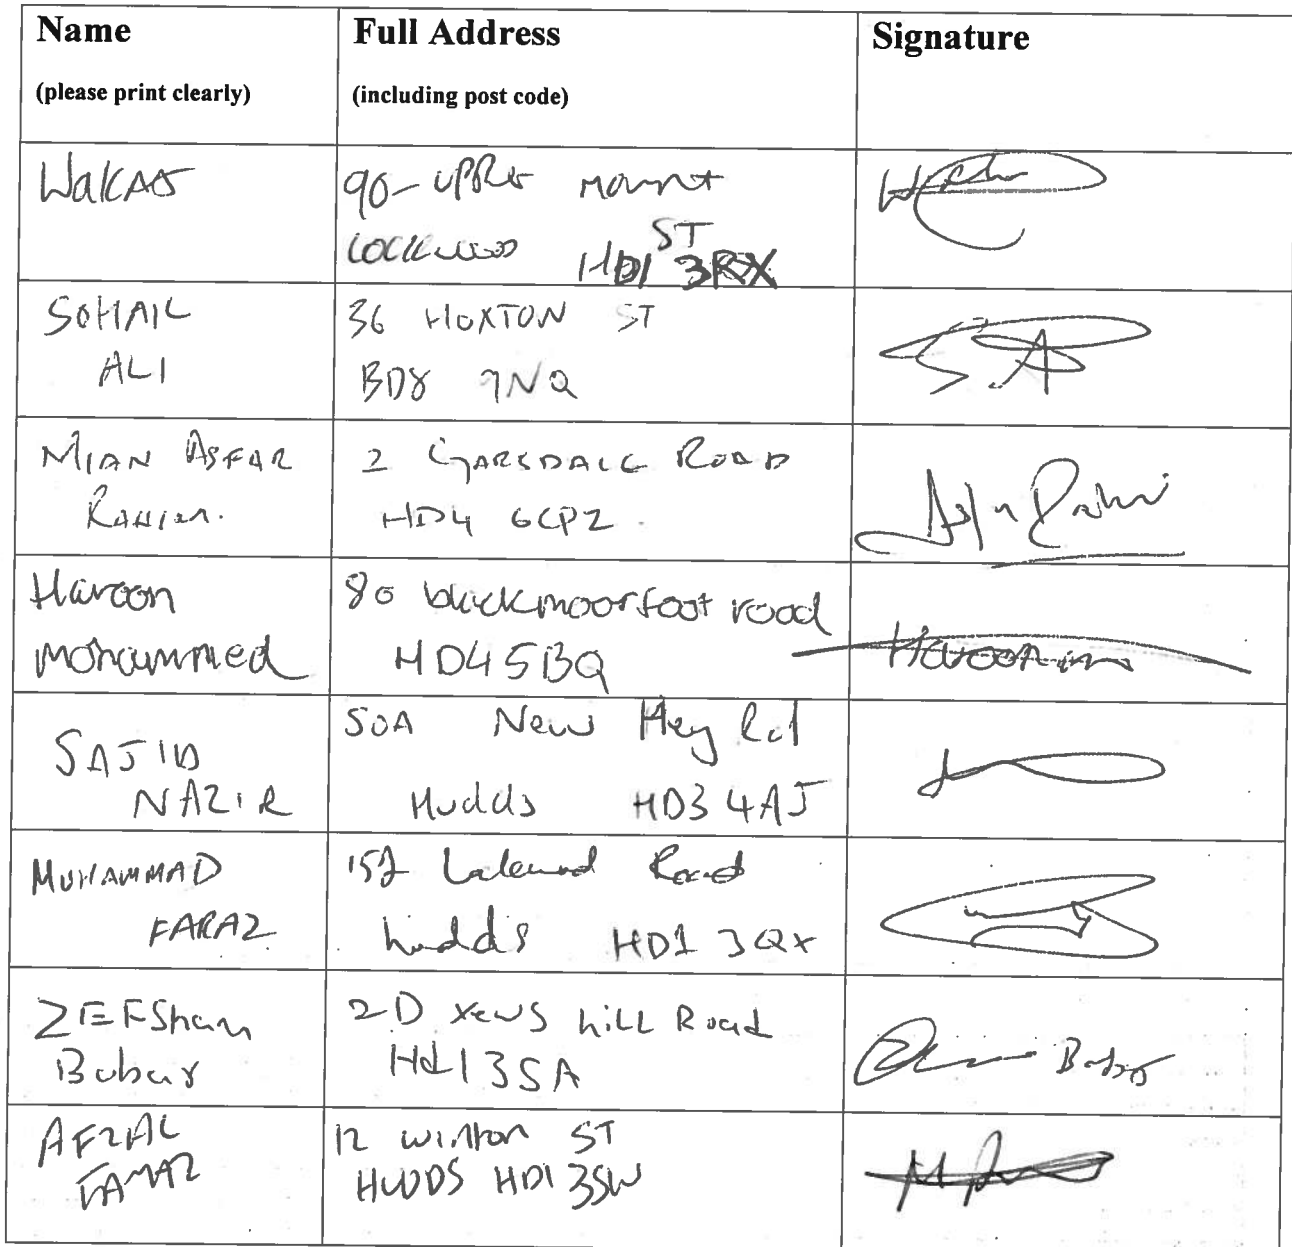 Name
(please print clearly)
Full Address
(including post code)
Signature
WaKAS
90-UPPer Mount
ST
LOCKWOOD HD1 3RX
SOHAIL
ALI
36 HOXTON ST
BD8 9NQ
S.A
MIAN ASFAR
RAHIM.
2 GARSDALE ROAD
HD4 6CPZ.
Haroon
Mohammed
80 blackmoorfoot road
HD4 5BQ
Haroon m
SAJID
NAZIR
50A New Hey Rd
Hudds HD3 4AJ
MUHAMMAD
FARAZ
Road
hudds HD1 3QX
ZEFSham
Babar
2D Yews hill Road
Hd1 3SA
Babar
AFZAL
12 winton ST
HUDDS HD1 3SW